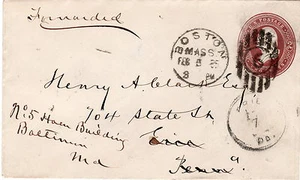 Forwarded
BOSTON
MASS.
FEB 5
8 PM
Henry A. Clark Esq
704 State St
Erie
Penn
No 5 Haen Building
Baltimore
Md
PA.